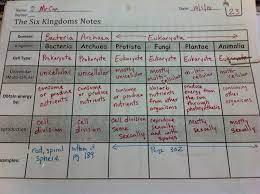 Name: Date:
Partner: 23
The Six Kingdoms Notes
Domain: Bacteria Archaea Eukaryota
Kingdom: Bacteria Archaea Protista Fungi Plantae Animalia
Cell Type: Prokaryote Prokaryote Eukaryote Eukaryote Eukaryote Eukaryote
unicellular unicellular mostly unicellular mostly multi-cellular multi-cellular
Obtain energy by: consume or produce nutrients consume or produce nutrients consume or produce nutrients nutrients from other produce energy from the sun through photosynthesis consuming other organisms
cell division cell division cell division some sexually sexually and with spores mostly sexually mostly sexually
Examples: rod, spiral sphere pg 189 Page 302